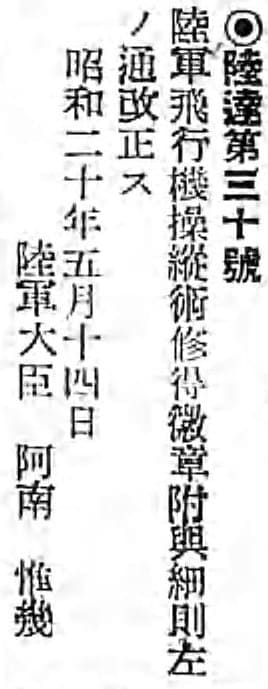 ◉陸達第三十號
陸軍飛行機操縱術修得徽章附與細則左
ノ通改正ス
昭和二十年五月十四日
陸軍大臣 阿南 惟幾